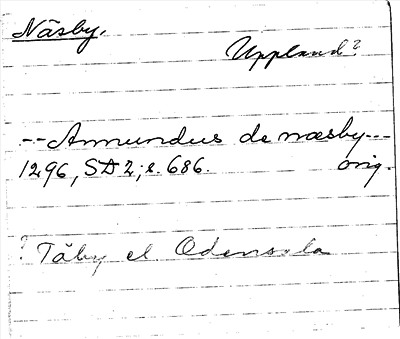 Näsby.
Uppland?
-- Amundus de næsby---
1296, SD 2, s. 686. orig.
? Täby el. Odensala